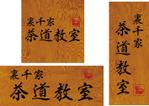 裏千家
茶道教室
裏千家
茶道教室
裏千家
茶道教室